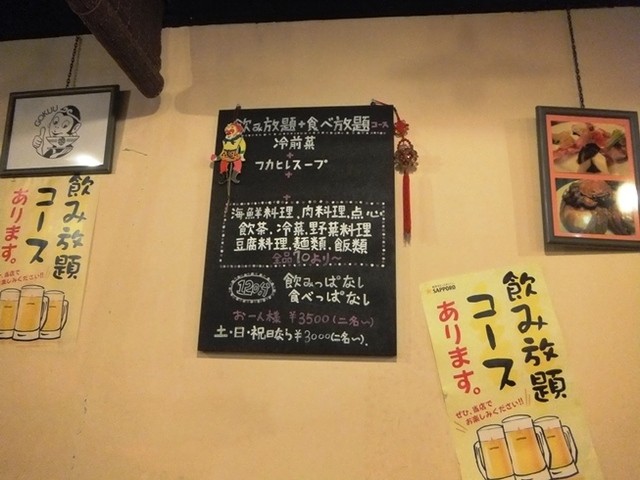 GOKUU
飲み放題
コース
あります。
飲み放題+食べ放題コース
冷前菜
+
フカヒレスープ
+
+
海鮮料理、肉料理、点心
飲茶、冷菜、野菜料理
豆腐料理、麺類、飯類
全品90より〜
120分
飲みっぱなし
食べっぱなし
お一人様 ¥3500(二名〜)
土・日・祝日なら¥3000(二名〜)
SAPPORO
飲み放題
コース
あります。
ぜひ、当店で
お楽しみください!!